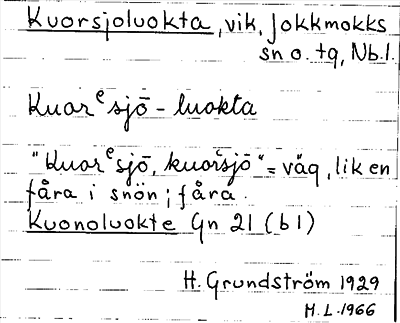 Kuorsjoluokta, vik, Jokkmokks
sn o. tg, Nb.l.
Kuorᵉsjō - luokta
"Kuorᵉsjō, kuoršjō" = väg, lik en
fåra i snön; fåra.
Kuonoluokte Gn 21 (b1)
H. Grundström 1929
H.L. 1966